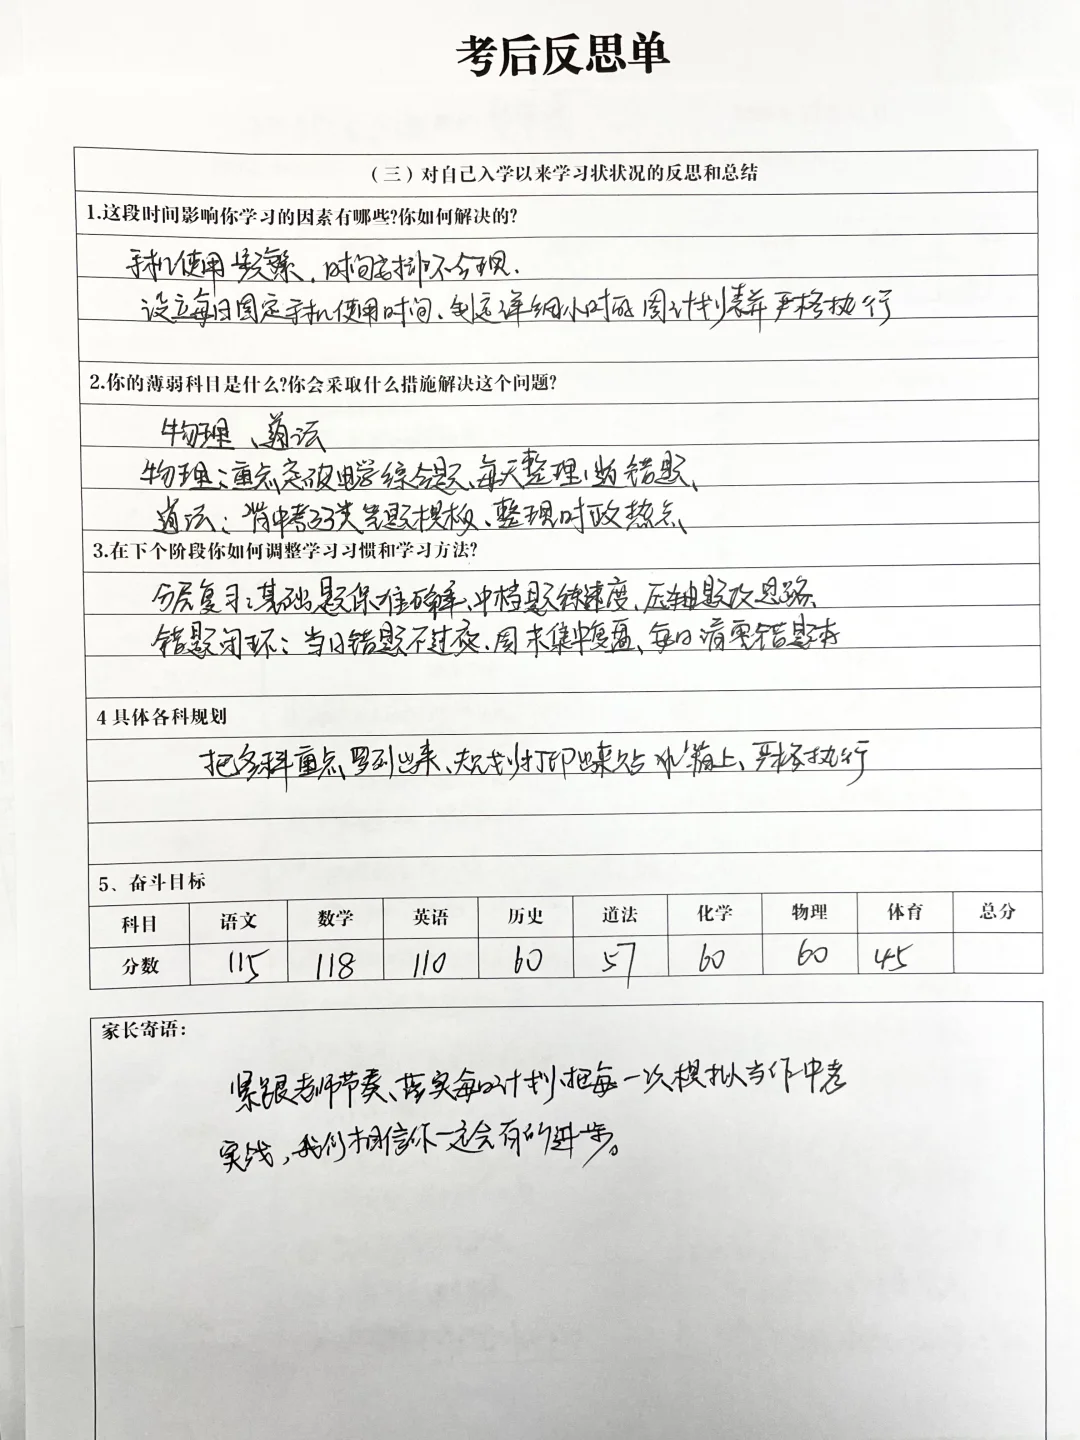 考后反思单
（三）对自己入学以来学习状状况的反思和总结
1.这段时间影响你学习的因素有哪些?你如何解决的?
手机使用频繁，时间安排不合理.
设立每日固定手机使用时间、制定详细小时的周计划表并严格执行
2.你的薄弱科目是什么?你会采取什么措施解决这个问题?
物理、道法
物理:重点突破电学综合题、每天整理1道错题、
道法: 背中考33类答题模板、整理时政热点
3.在下个阶段你如何调整学习习惯和学习方法?
分层复习:基础题保准确率、中档题练速度、压轴题攻思路、
错题闭环: 当日错题不过夜、周末集中复盘、每日清零错题本
4具体各科规划
把各科重点罗列出来、规划打印出来贴冰箱上、严格执行
5、奋斗目标
科目 语文 数学 英语 历史 道法 化学 物理 体育 总分
分数 115 118 110 60 57 60 60 45
家长寄语:
紧跟老师节奏、落实每日计划、把每一次模拟当作中考
实战，我们相信你一定会有的进步。